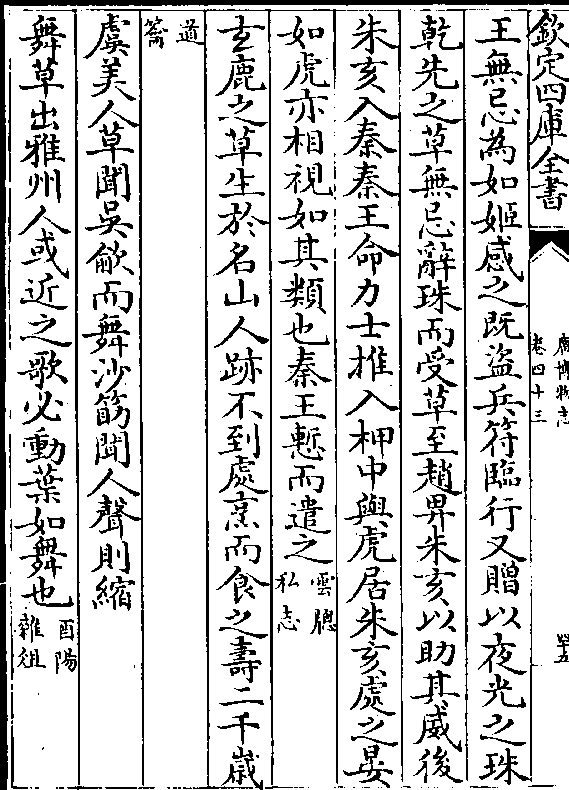 欽定四庫全書
廣博物志
卷四十三
王無忌為如姬感之既盜兵符臨行又贈以夜光之珠
乾先之草無忌辭珠而受草至趙畀朱亥以助其威後
朱亥入秦秦王命力士推入柙中與虎居朱亥處之晏
如虎亦相視如其類也秦王慙而遣之雲聰私志
玄鹿之草生於名山人跡不到處烹而食之壽二千歲
道籥
虞美人草聞吳歈而舞沙筯聞人聲則縮
舞草出雅州人或近之歌必動葉如舞也酉陽雜俎